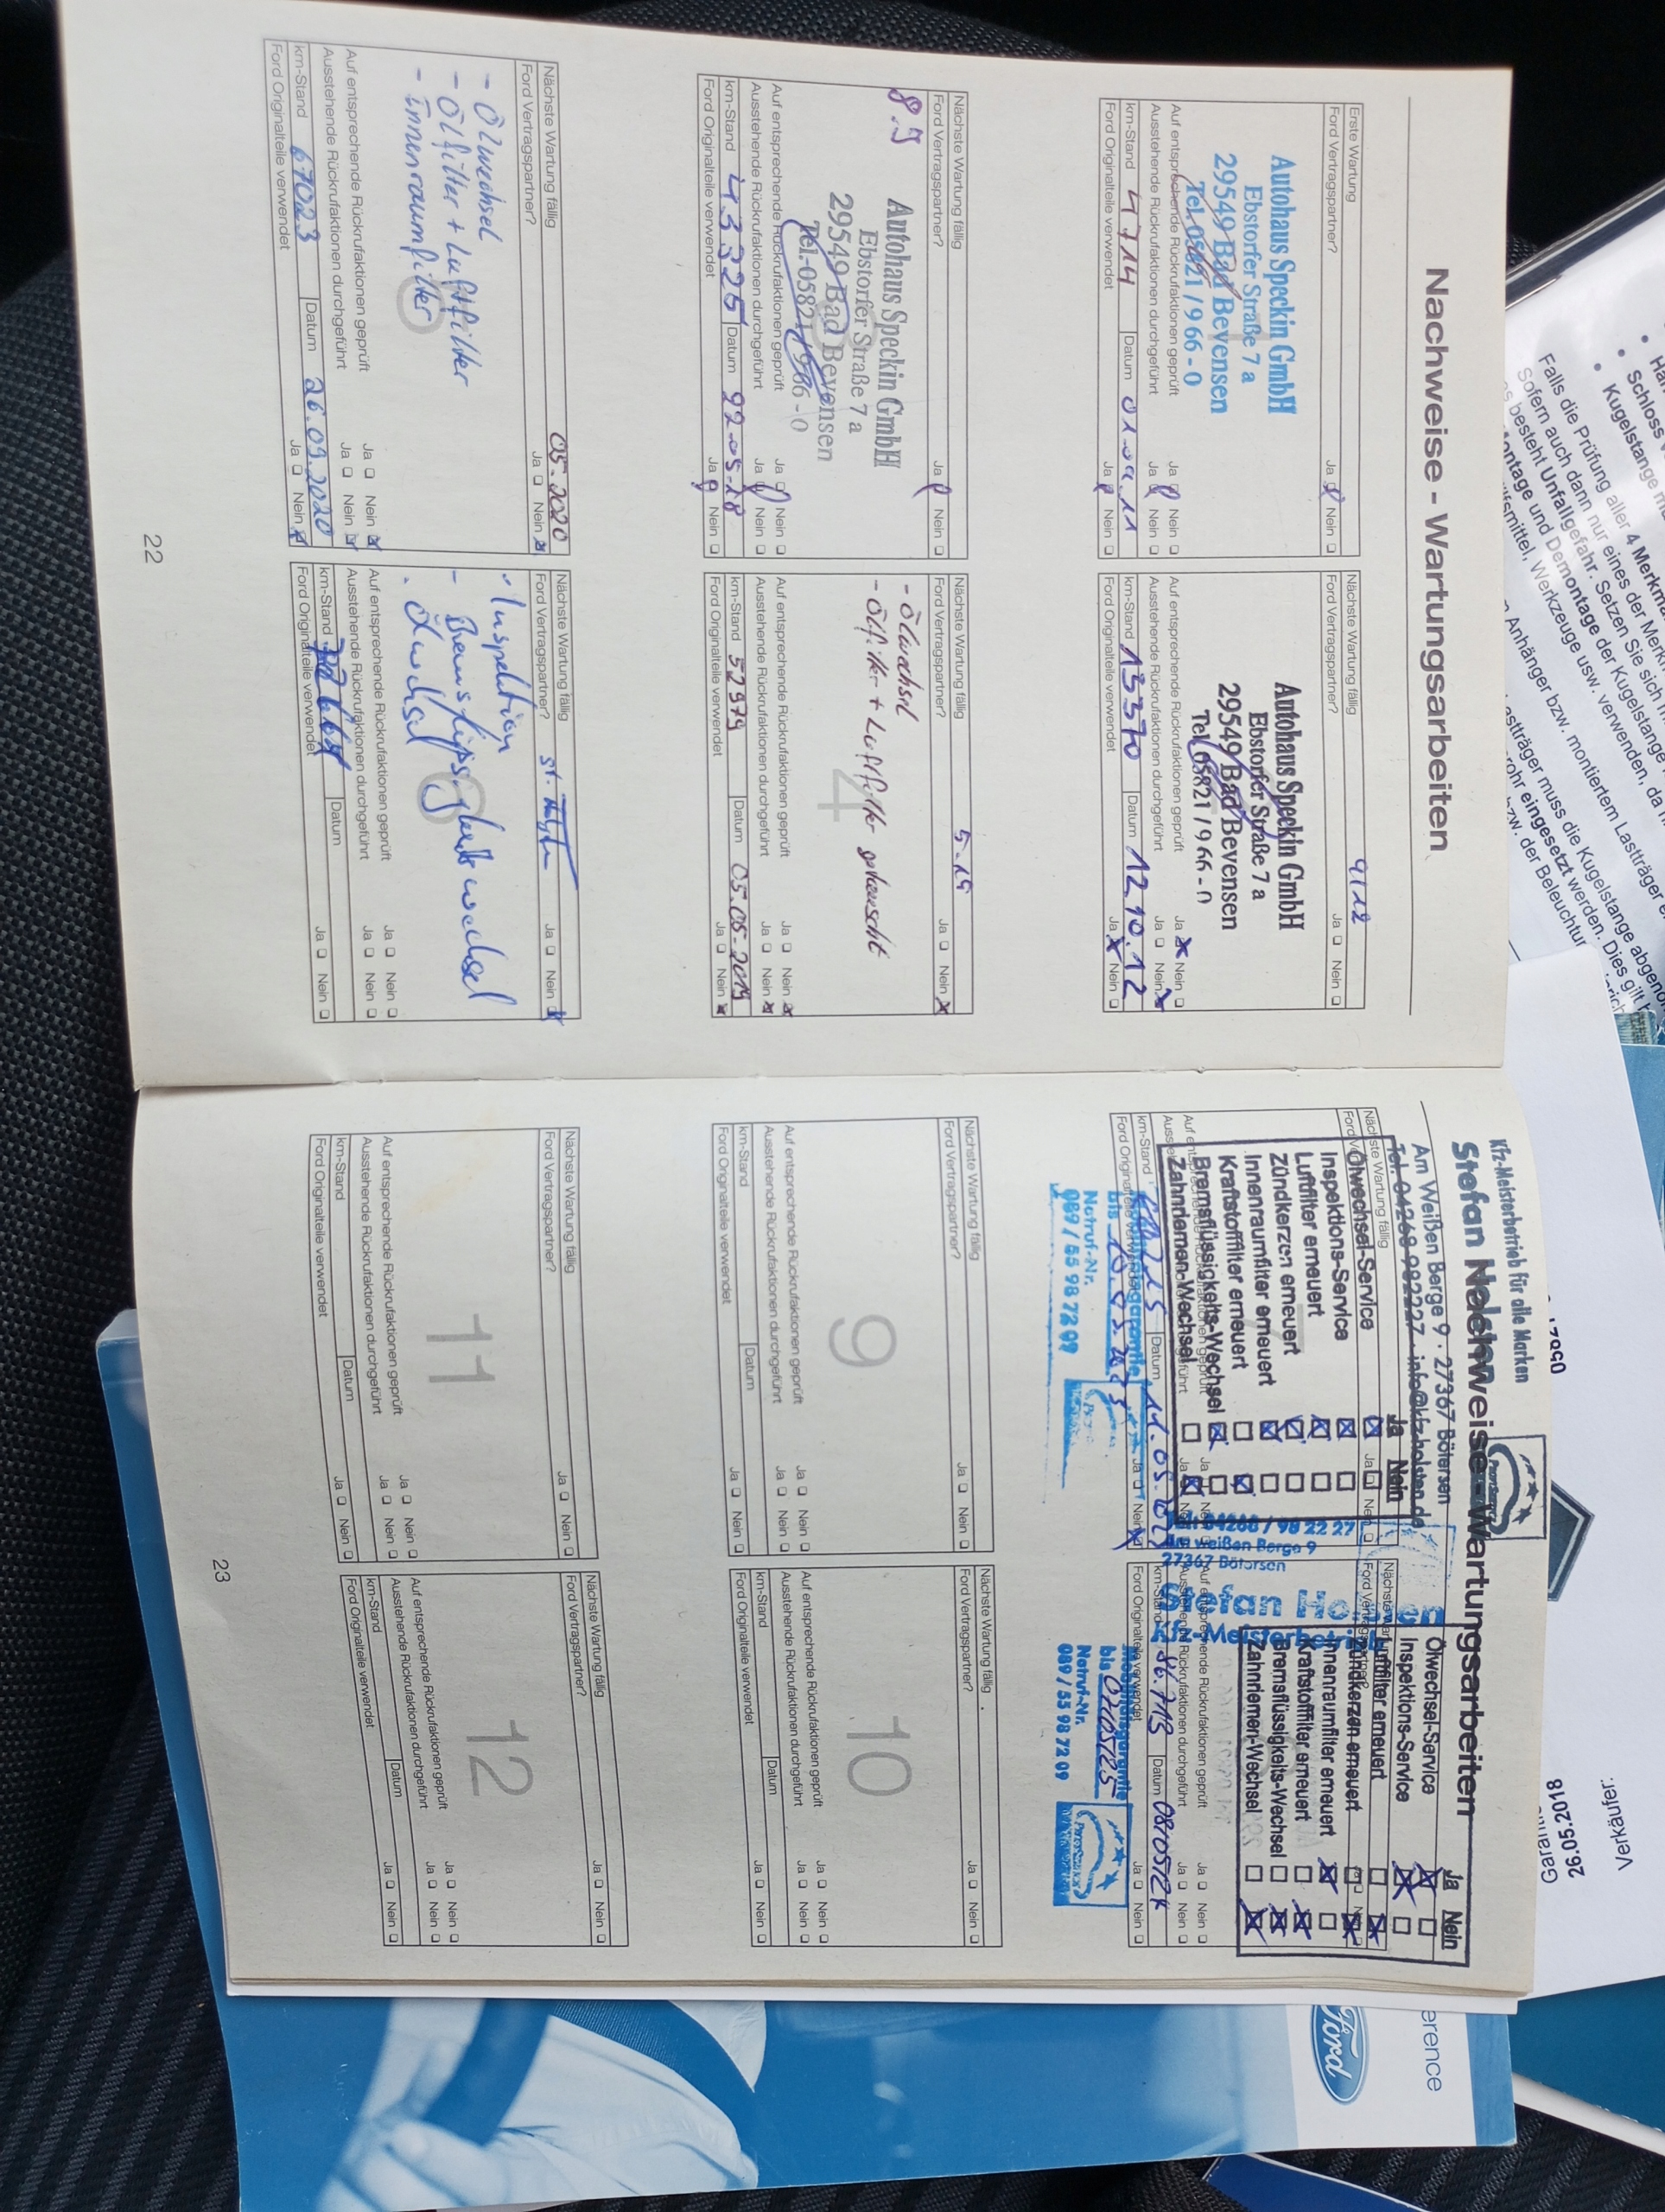 Nachweise - Wartungsarbeiten
Erste Wartung
Ford Vertragspartner? Ja Nein
Autohaus Speckin GmbH
Ebstorfer Straße 7 a
29549 Bad Bevensen
Tel. 05821 / 9 66 - 0
Auf entsprechende Rückrufaktionen geprüft Ja Nein
Ausstehende Rückrufaktionen durchgeführt Ja Nein
km-Stand 4714 Datum
Ford Originalteile verwendet Ja Nein
Nächste Wartung fällig 9/12
Ford Vertragspartner? Ja Nein
Autohaus Speckin GmbH
Ebstorfer Straße 7 a
29549 Bad Bevensen
Tel. 05821 / 9 66 - 0
Auf entsprechende Rückrufaktionen geprüft Ja Nein
Ausstehende Rückrufaktionen durchgeführt Ja Nein
km-Stand 13370 Datum 12.10.12
Ford Originalteile verwendet Ja Nein
Nächste Wartung fällig
Ford Vertragspartner? Ja Nein
Autohaus Speckin GmbH
Ebstorfer Straße 7 a
29549 Bad Bevensen
Tel. 05821 / 966 - 0
Auf entsprechende Rückrufaktionen geprüft Ja Nein
Ausstehende Rückrufaktionen durchgeführt Ja Nein
km-Stand 43325 Datum 22.05.18
Ford Originalteile verwendet Ja Nein
Nächste Wartung fällig 5.19
Ford Vertragspartner? Ja Nein
- Ölwechsel
- Ölfilter + Luftfilter getauscht
4
Auf entsprechende Rückrufaktionen geprüft Ja Nein
Ausstehende Rückrufaktionen durchgeführt Ja Nein
km-Stand 52979 Datum 05.05.2019
Ford Originalteile verwendet Ja Nein
Nächste Wartung fällig 05.2020
Ford Vertragspartner? Ja Nein
- Ölwechsel
- Ölfilter + Luftfilter
- Innenraumfilter
Auf entsprechende Rückrufaktionen geprüft Ja Nein
Ausstehende Rückrufaktionen durchgeführt Ja Nein
km-Stand 67023 Datum 26.09.2020
Ford Originalteile verwendet Ja Nein
Nächste Wartung fällig
Ford Vertragspartner? Ja Nein
Inspektion
- Bremsflüssigkeitswechsel
Ölwechsel
6
Auf entsprechende Rückrufaktionen geprüft Ja Nein
Ausstehende Rückrufaktionen durchgeführt Ja Nein
km-Stand Datum
Ford Originalteile verwendet Ja Nein
22
Kfz-Meisterbetrieb für alle Marken
Nachweise - Wartungsarbeiten
Stefan
Am Weißen Berge 9 · 27367 Bötersen
Tel. 04268-982227 info@kfzholsten.de
Nächste Wartung fällig
Ja Nein
Ölwechsel-Service
Inspektions-Service
Luftfilter erneuert
Zündkerzen erneuert
Innenraumfilter erneuert
Kraftstoffilter erneuert
Bremsflüssigkeits-Wechsel
Zahnriemen-Wechsel
km-Stand Datum
Ford Originalteile verwendet Ja Nein
Mobilitätsgarantie
bis
Notruf-Nr.
089 / 55 98 72 09
04268 / 98 22 27
Am weißen Berge 9
27367 Bötersen
Stefan Holsten
Kfz-Meisterbetrieb
Ja Nein
Ölwechsel-Service
Inspektions-Service
Luftfilter erneuert
Zündkerzen erneuert
Innenraumfilter erneuert
Kraftstoffilter erneuert
Bremsflüssigkeits-Wechsel
Zahnriemen-Wechsel
Auf entsprechende Rückrufaktionen geprüft Ja Nein
Ausstehende Rückrufaktionen durchgeführt Ja Nein
km-Stand 86.713 Datum 08/05/24
Ford Originalteile verwendet Ja Nein
Mobilitätsgarantie
bis 07/05/25
Notruf-Nr.
089 / 55 98 72 09
Nächste Wartung fällig
Ford Vertragspartner? Ja Nein
9
Auf entsprechende Rückrufaktionen geprüft Ja Nein
Ausstehende Rückrufaktionen durchgeführt Ja Nein
km-Stand Datum
Ford Originalteile verwendet Ja Nein
Nächste Wartung fällig
Ford Vertragspartner? Ja Nein
10
Auf entsprechende Rückrufaktionen geprüft Ja Nein
Ausstehende Rückrufaktionen durchgeführt Ja Nein
km-Stand Datum
Ford Originalteile verwendet Ja Nein
Nächste Wartung fällig
Ford Vertragspartner? Ja Nein
11
Auf entsprechende Rückrufaktionen geprüft Ja Nein
Ausstehende Rückrufaktionen durchgeführt Ja Nein
km-Stand Datum
Ford Originalteile verwendet Ja Nein
Nächste Wartung fällig
Ford Vertragspartner? Ja Nein
12
Auf entsprechende Rückrufaktionen geprüft Ja Nein
Ausstehende Rückrufaktionen durchgeführt Ja Nein
km-Stand Datum
Ford Originalteile verwendet Ja Nein
23
Schloss
Kugelstange
Falls die Prüfung aller 4
Sofern auch dann nur eines der
besteht Unfallgefahr. Setzen Sie sich
und Demontage der Kugelstange
Werkzeuge usw. verwenden, da
Anhänger bzw. montiertem Lastträger
muss die Kugelstange
eingesetzt werden. Dies gilt
bzw. der
26.05.2018
Verkäufer:
Ford